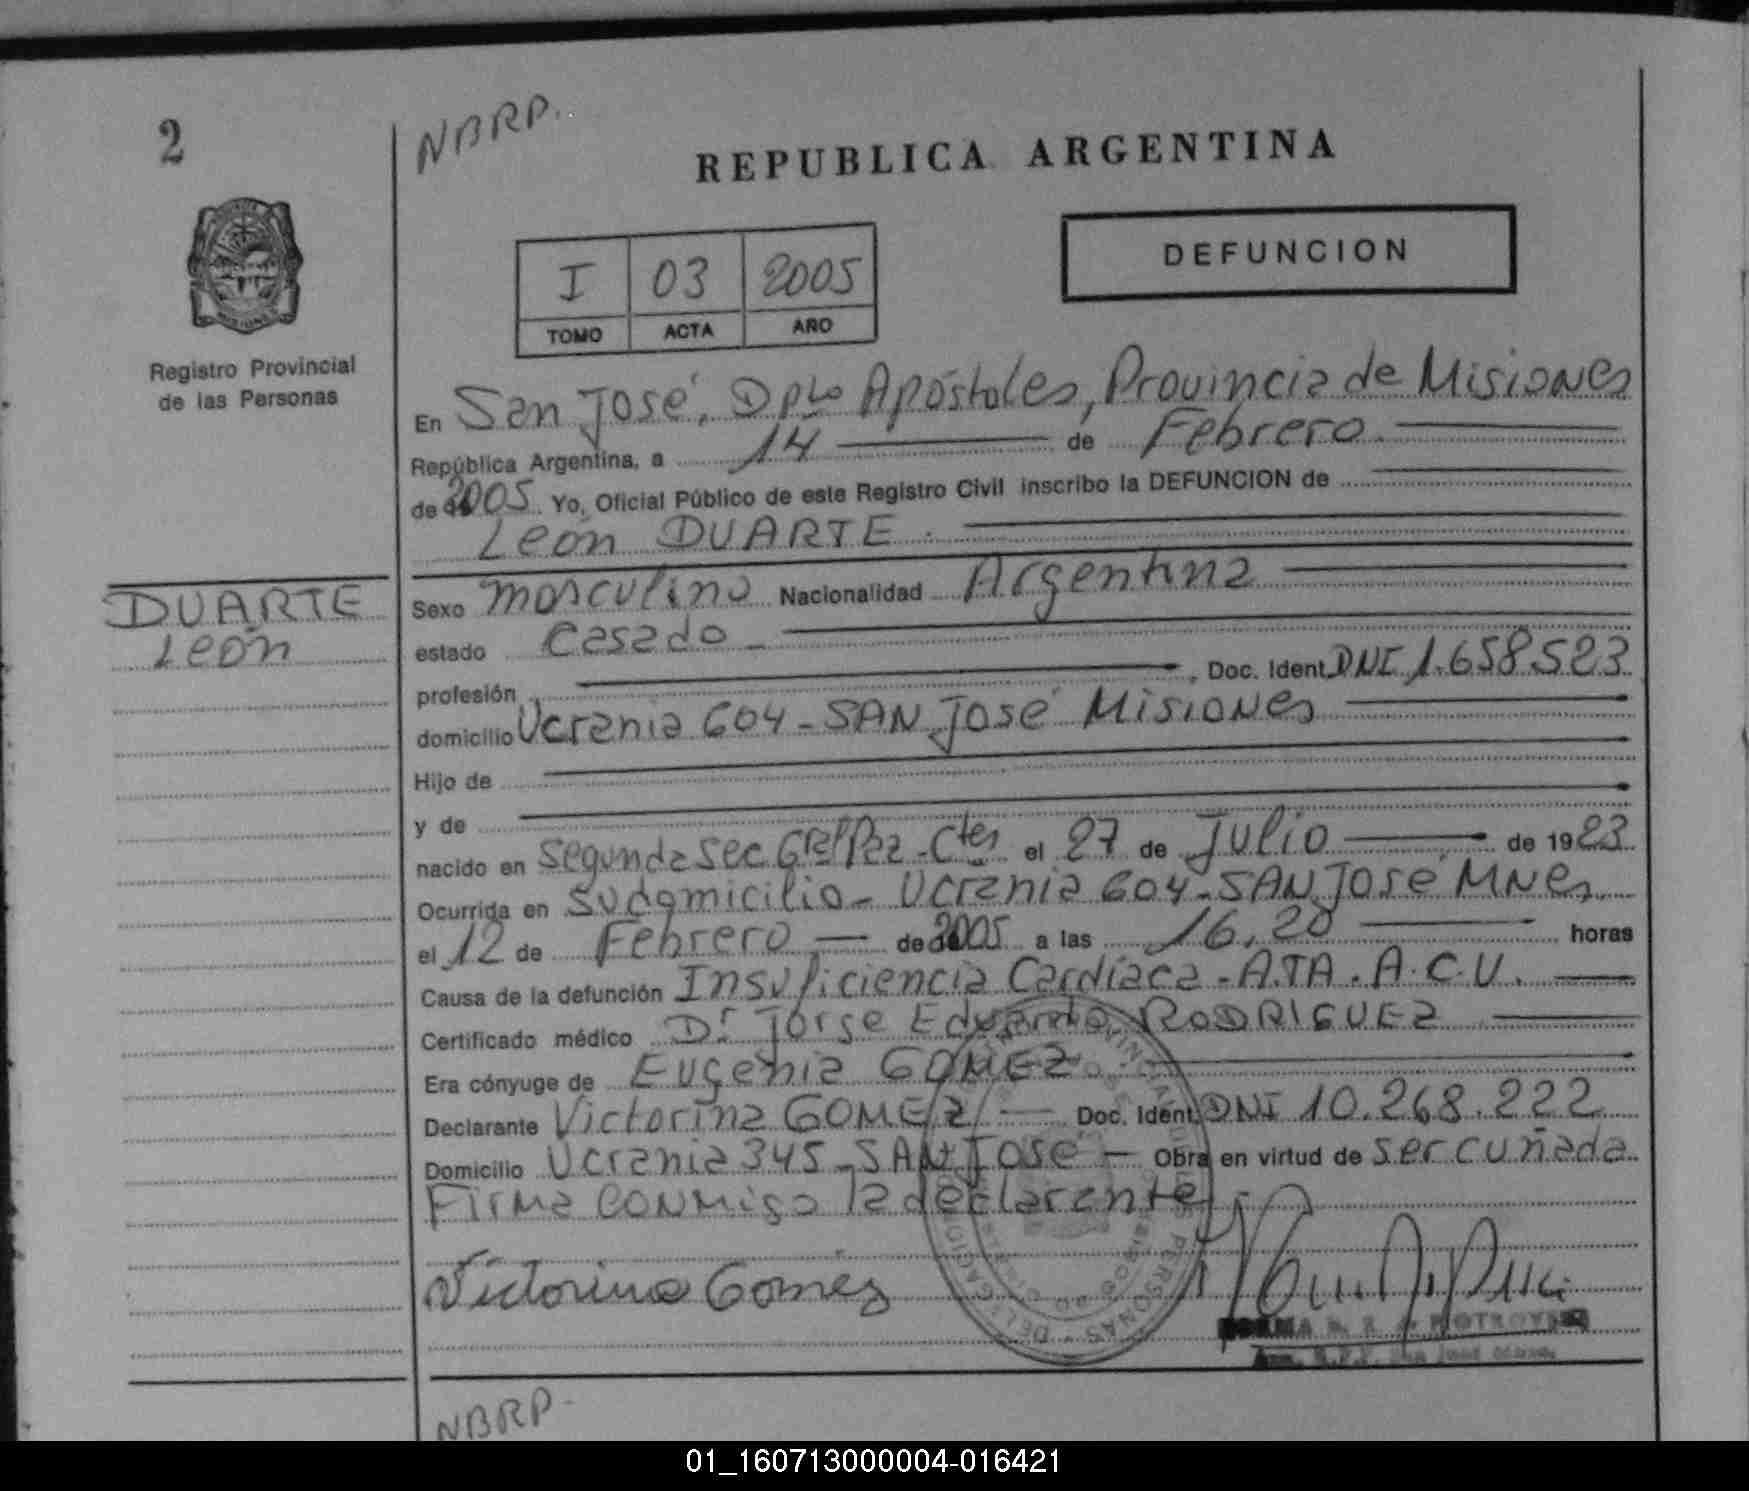 2
NBRP.
REPUBLICA ARGENTINA
DEFUNCION
I 03 2005
TOMO ACTA AÑO
Registro Provincial
de las Personas
En San José, Dpto Apóstoles, Provincia de Misiones
República Argentina, a 14 de Febrero
de 2005 Yo, Oficial Público de este Registro Civil inscribo la DEFUNCION de
León DUARTE.
DUARTE
León
Sexo masculino Nacionalidad Argentina
estado Casado
profesión , Doc. Ident. DNI 1.658.523
domicilio Ucrania 604 - SAN José Misiones
Hijo de
y de
nacido en Segunda Sec Gral Paz - Ctes el 27 de Julio de 1923
Ocurrida en su domicilio - Ucrania 604 - SAN José MNes
el 12 de Febrero de 2005 a las 16,20 horas
Causa de la defunción Insuficiencia Cardíaca - A.T.A. A.C.V.
Certificado médico Dr Jorge Eduardo RODRIGUEZ
Era cónyuge de Eugenia GOMEZ
Declarante Victorina GOMEZ Doc. Ident. DNI 10.268.222
Domicilio Ucrania 345 - SAN José - Obra en virtud de ser cuñada
Firma conmigo la declarante
Victorina Gomez
NBRP-
01_160713000004-016421